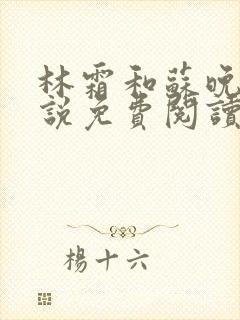 林霜和蘇晚
說免費閱讀
楊十六